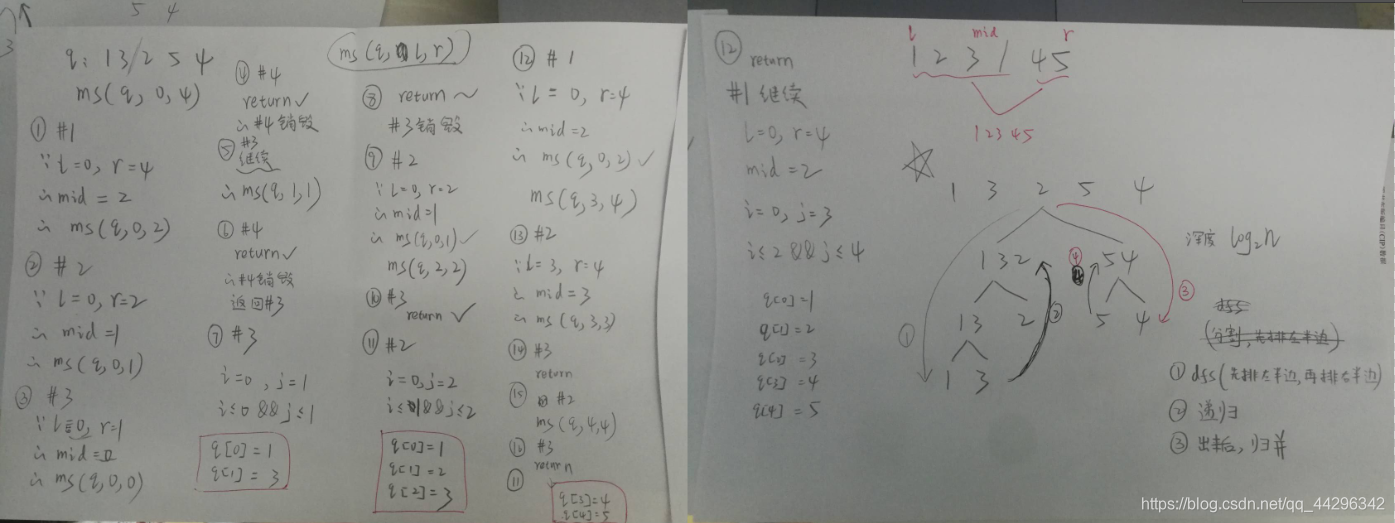 5 4
3
q: 1 3/2 5 4
ms(q, 0, 4)
① #1
∵ l=0, r=4
∴ mid = 2
∴ ms(q,0,2)
② #2
∵ l=0, r=2
∴ mid=1
∴ ms(q,0,1)
③ #3
∵ l=0, r=1
∴ mid=0
∴ ms(q,0,0)
④ #4
return ✓
∴ #4销毁
⑤ #3
继续
∴ ms(q,1,1)
⑥ #4
return ✓
∴ #4销毁
返回#3
⑦ #3
i=0, j=1
i≤0 && j≤1
q[0]=1
q[1]=3
ms(q, l, r)
⑧ return ~
#3销毁
⑨ #2
∵ l=0, r=2
∴ mid=1
∴ ms(q,0,1) ✓
ms(q,2,2)
⑩ #3
return ✓
⑪ #2
i=0, j=2
i≤1 && j≤2
q[0]=1
q[1]=2
q[2]=3
⑫ #1
∵ l=0, r=4
∴ mid=2
∴ ms(q,0,2) ✓
ms(q,3,4)
⑬ #2
∵ l=3, r=4
∴ mid=3
∴ ms(q,3,3)
⑭ #3
return
⑮ #2
ms(q,4,4)
⑯ #3
return
⑪
q[3]=4
q[4]=5
⑫ return
#1 继续
l=0, r=4
mid=2
i=0, j=3
i≤2 && j≤4
q[0]=1
q[1]=2
q[2]=3
q[3]=4
q[4]=5
l mid r
1 2 3 1 4 5
1 2 3 4 5
☆
1 3 2 5 4
1 3 2 ④ 5 4
1 3 2 5 4
1 3
① ② ③
深度 log₂n
dfs
(分割,先排左半边)
① dfs(先排左半边,再排右半边)
② 递归
③ 出来后,归并
https://blog.csdn.net/qq_44296342